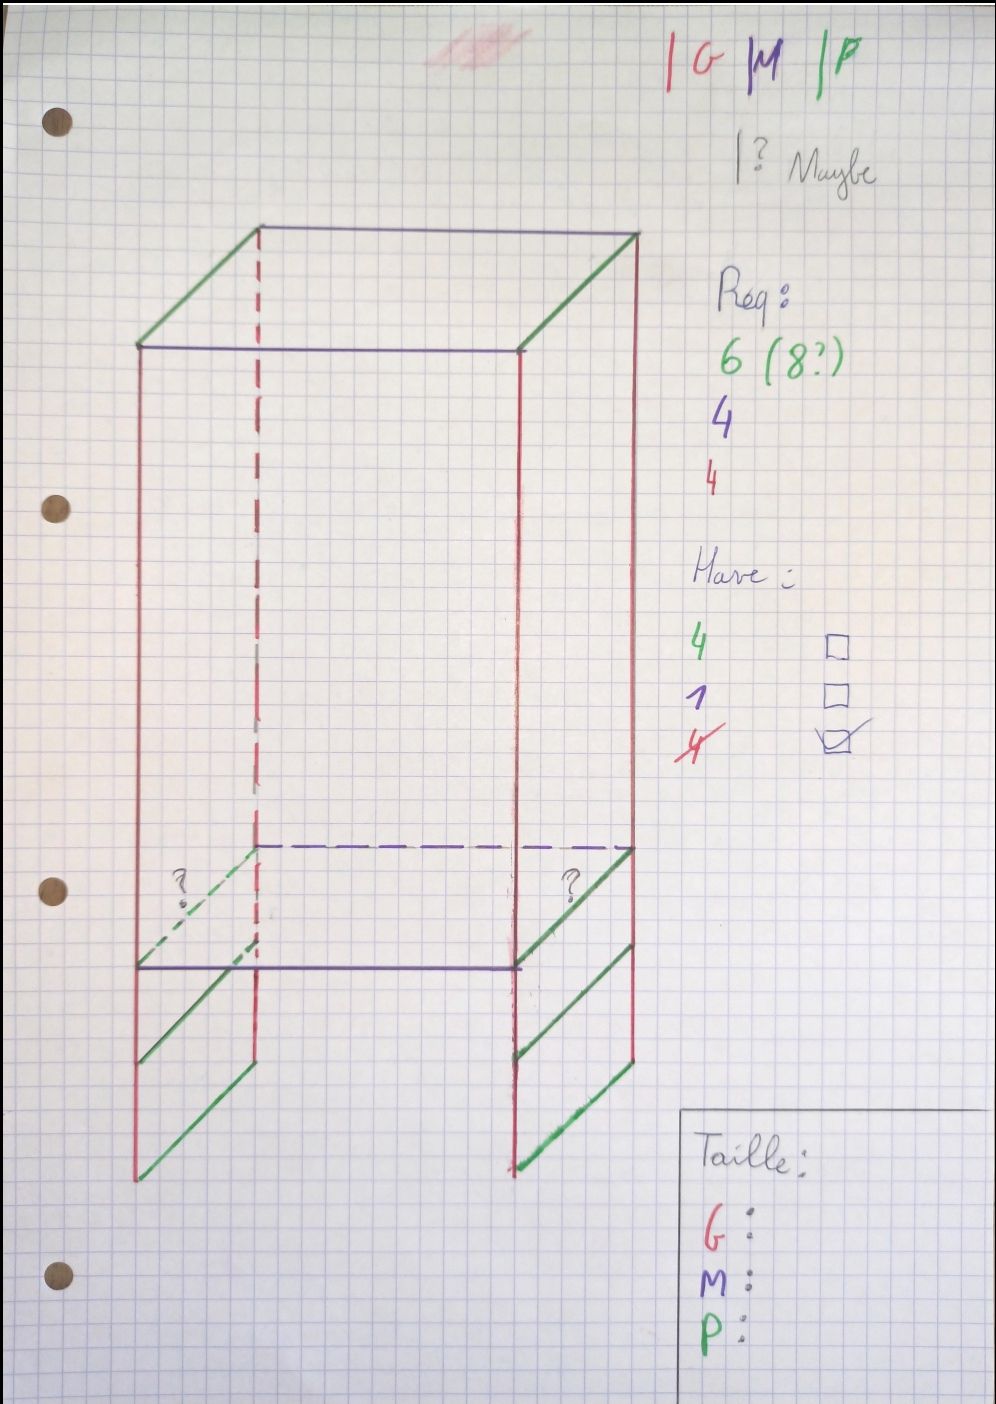 |G |M |P
|? Maybe
Req:
6 (8?)
4
4
Have:
4
1
4
?
?
Taille:
G:
M:
P: